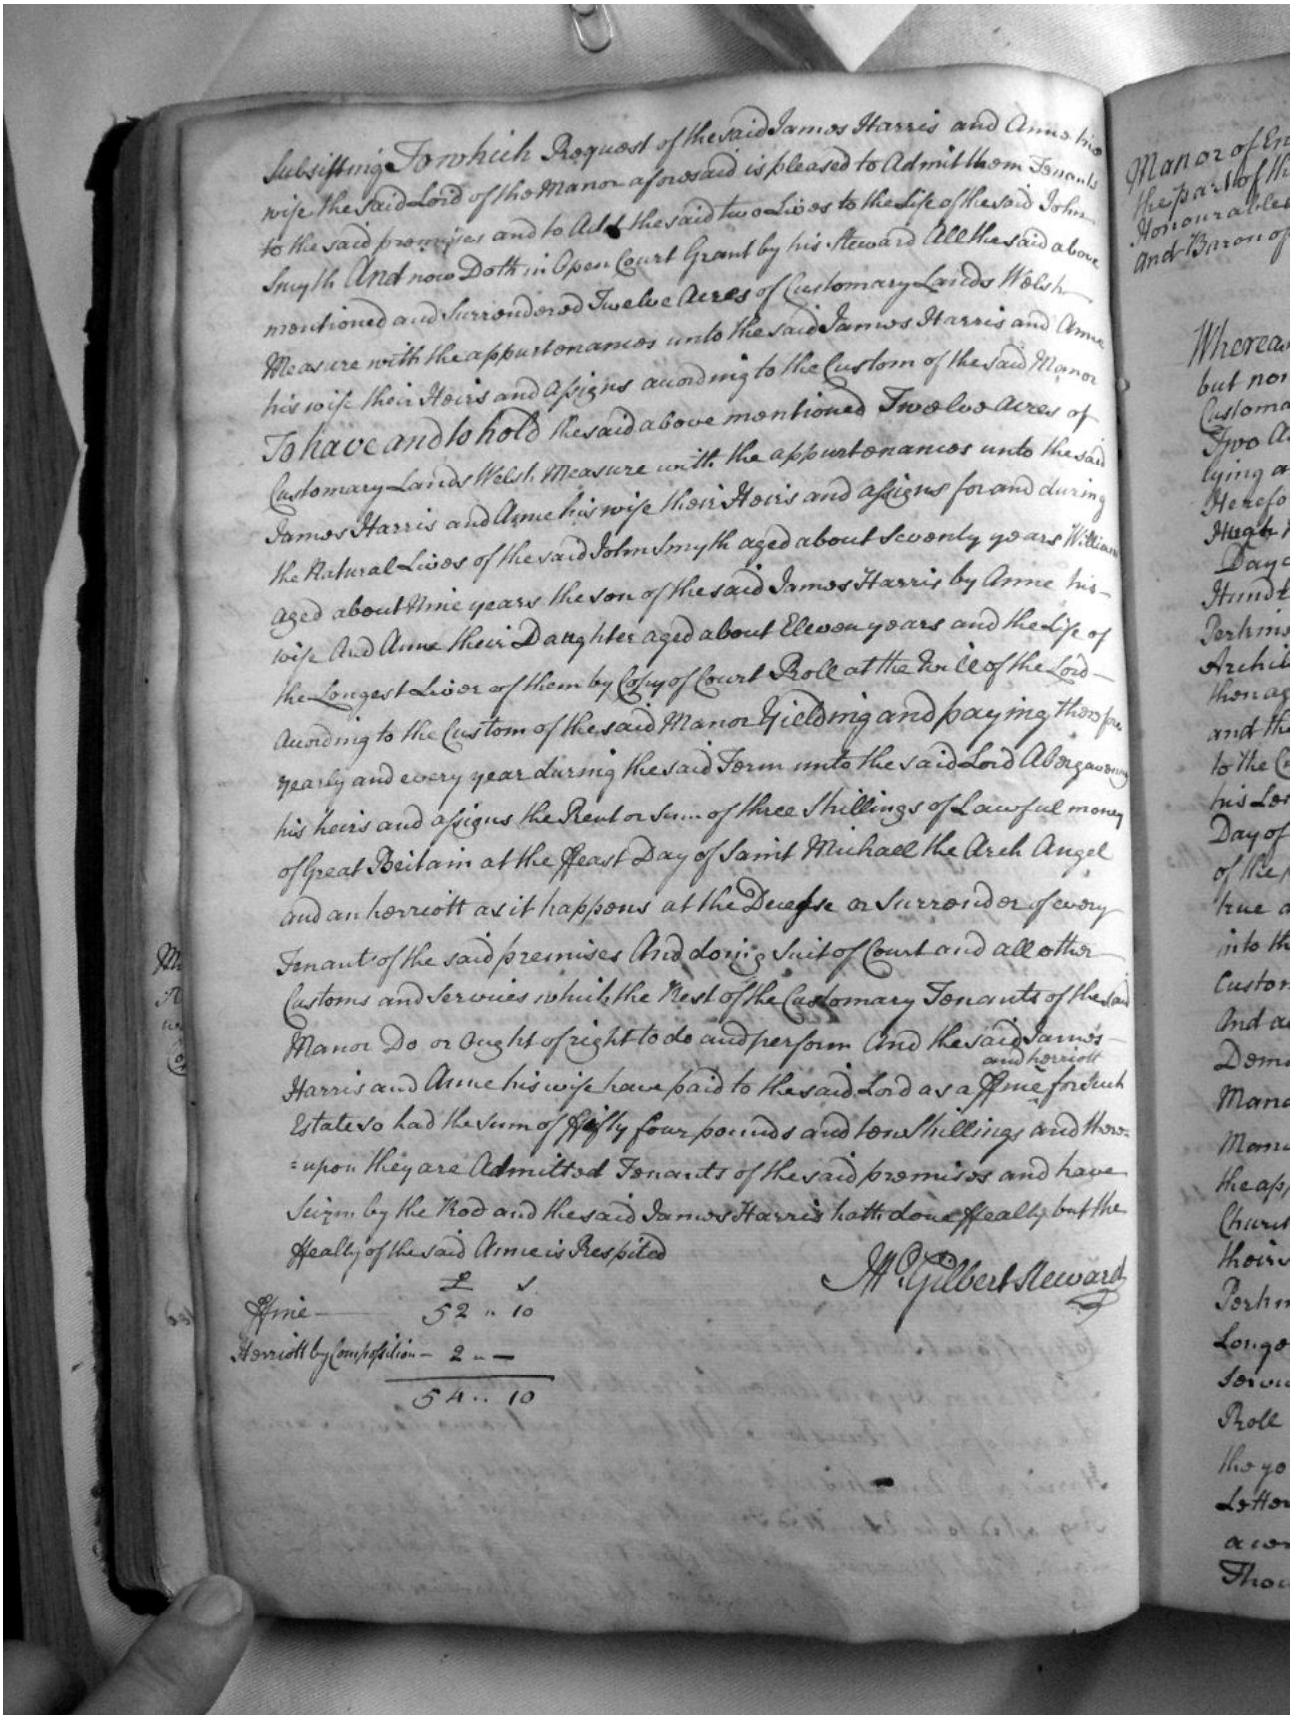 Subsisting To which Request of the said James Harris and Anne his
wife the said Lord of the Manor aforesaid is pleased to Admit them Tenants
to the said premises and to Add the said two Lives to the Life of the said John
Smyth And now Doth in Open Court Grant by his Steward All the said above
mentioned and Surrendered Twelve Acres of Customary Lands Welsh
Measure with the appurtenances unto the said James Harris and Anne
his wife their Heirs and Assigns according to the Custom of the said Manor
To have and to hold the said above mentioned Twelve Acres of
Customary Lands Welsh Measure with the appurtenances unto the said
James Harris and Anne his wife their Heirs and assigns for and during
the Natural Lives of the said John Smyth aged about Seventy years William
aged about Nine years the son of the said James Harris by Anne his
wife And Anne their Daughter aged about Eleven years and the Life of
the Longest Liver of them by Copy of Court Roll at the Will of the Lord
According to the Custom of the said Manor Yielding and paying therefore
yearly and every year during the said Term unto the said Lord Abergavenny
his heirs and assigns the Rent or Sum of three Shillings of Lawful money
of Great Britain at the ffeast Day of Saint Michael the Arch Angel
and an herriott as it happens at the Decease or Surrender of every
Tenant of the said premises And doing Suit of Court and all other
Customs and Services which the Rest of the Customary Tenants of the said
Manor Do or Ought of right to do and perform And the said James
and herriott
Harris and Anne his wife have paid to the said Lord as a ffine for such
Estate so had the sum of ffifty four pounds and ten Shillings and there=
=upon they are Admitted Tenants of the said premises and have
Seizin by the Rod and the said James Harris hath done ffealty but the
ffealty of the said Anne is Respited
Gilbert Steward
£ s
ffine — 52 .. 10
Herriott by Composition — 2 .. —
54 .. 10
Manor of
the part of
Honourable
And Baron of
Whereas
but
Two
lying a
Hugh
Day
and the
to the
his
Day of
of the
true
into the
And
Mano
Roll